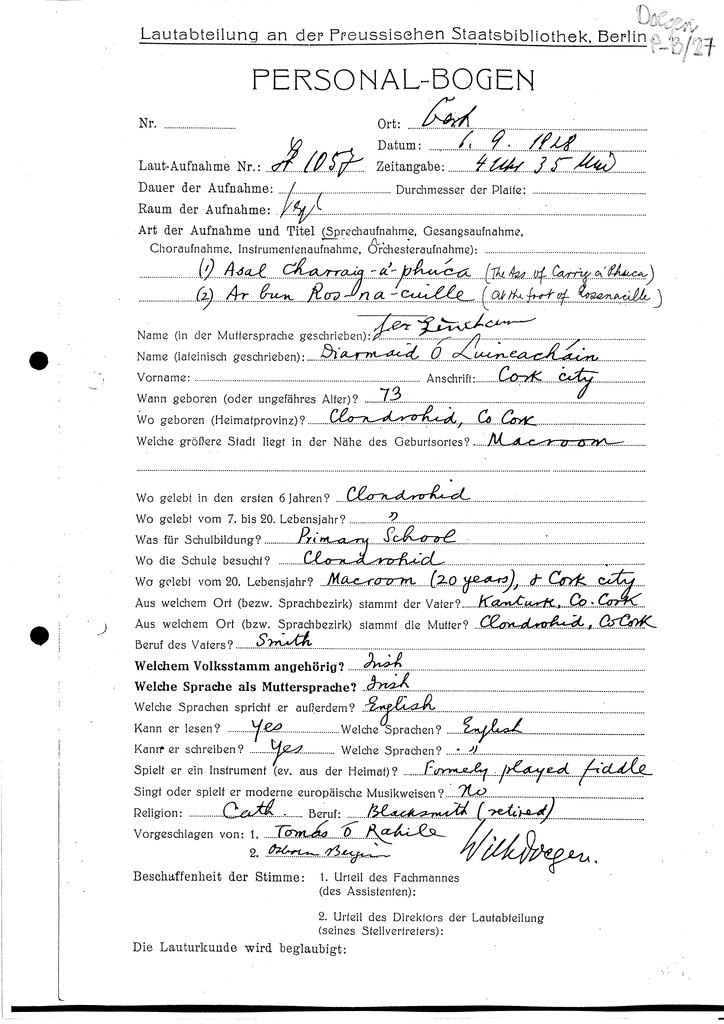 Doegen
P-B/27
Lautabteilung an der Preussischen Staatsbibliothek, Berlin
PERSONAL-BOGEN
Nr.
Ort: Cork
Datum: 6. 9. 1928
Laut-Aufnahme Nr.: LA 1057 Zeitangabe: 4 Uhr 35 Min
Dauer der Aufnahme: Durchmesser der Platte:
Raum der Aufnahme:
Art der Aufnahme und Titel (Sprechaufnahme, Gesangsaufnahme,
Choraufnahme, Instrumentenaufnahme, Orchesteraufnahme):
(1) Asal Charraig-a'-phúca (The Ass of Carrig a' Phuca)
(2) Ar bun Ros-na-cuille (At the foot of Rossnacuille)
Name (in der Muttersprache geschrieben): Jer Linehan
Name (lateinisch geschrieben): Diarmaid Ó Luineacháin
Vorname: Anschrift: Cork city
Wann geboren (oder ungefähres Alter)? 73
Wo geboren (Heimatprovinz)? Clondrohid, Co Cork
Welche größere Stadt liegt in der Nähe des Geburtsortes? Macroom
Wo gelebt in den ersten 6 Jahren? Clondrohid
Wo gelebt vom 7. bis 20. Lebensjahr? "
Was für Schulbildung? Primary School
Wo die Schule besucht? Clondrohid
Wo gelebt vom 20. Lebensjahr? Macroom (20 years), & Cork city
Aus welchem Ort (bezw. Sprachbezirk) stammt der Vater? Kanturk, Co. Cork
Aus welchem Ort (bezw. Sprachbezirk) stammt die Mutter? Clondrohid, Co Cork
Beruf des Vaters? Smith
Welchem Volksstamm angehörig? Irish
Welche Sprache als Muttersprache? Irish
Welche Sprachen spricht er außerdem? English
Kann er lesen? Yes Welche Sprachen? English
Kann er schreiben? Yes Welche Sprachen? "
Spielt er ein Instrument (ev. aus der Heimat)? Formely played fiddle
Singt oder spielt er moderne europäische Musikweisen? No
Religion: Cath. Beruf: Blacksmith (retired)
Vorgeschlagen von: 1. Tomás Ó Rahile
2. Osborn Bergin Wilh Doegen.
Beschaffenheit der Stimme: 1. Urteil des Fachmannes
(des Assistenten):
2. Urteil des Direktors der Lautabteilung
(seines Stellvertreters):
Die Lauturkunde wird beglaubigt: